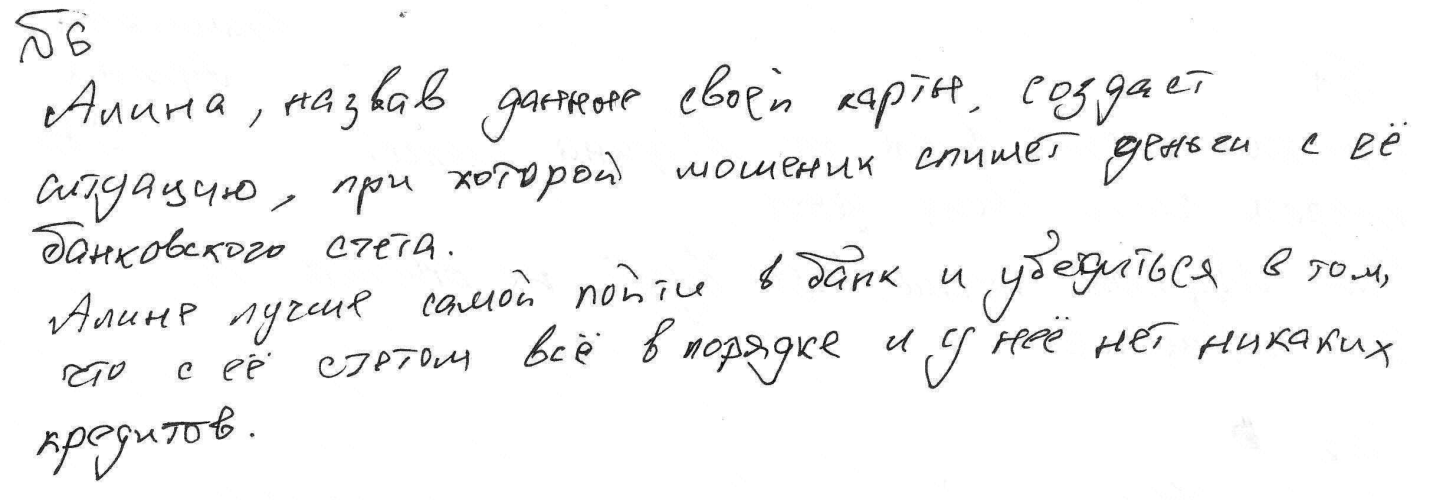 №6
Алина, назвав данные своей карты, создаст
ситуацию, при которой мошеник спишет деньги с её
банковского счета.
Алине лучше самой пойти в банк и убедиться в том,
что с её счетом всё в порядке и у неё нет никаких
кредитов.